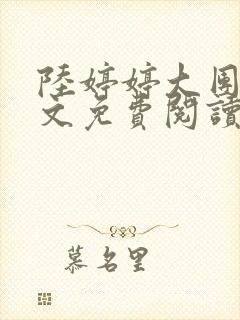 陸婷婷大圍
文免費閱讀
慕名里